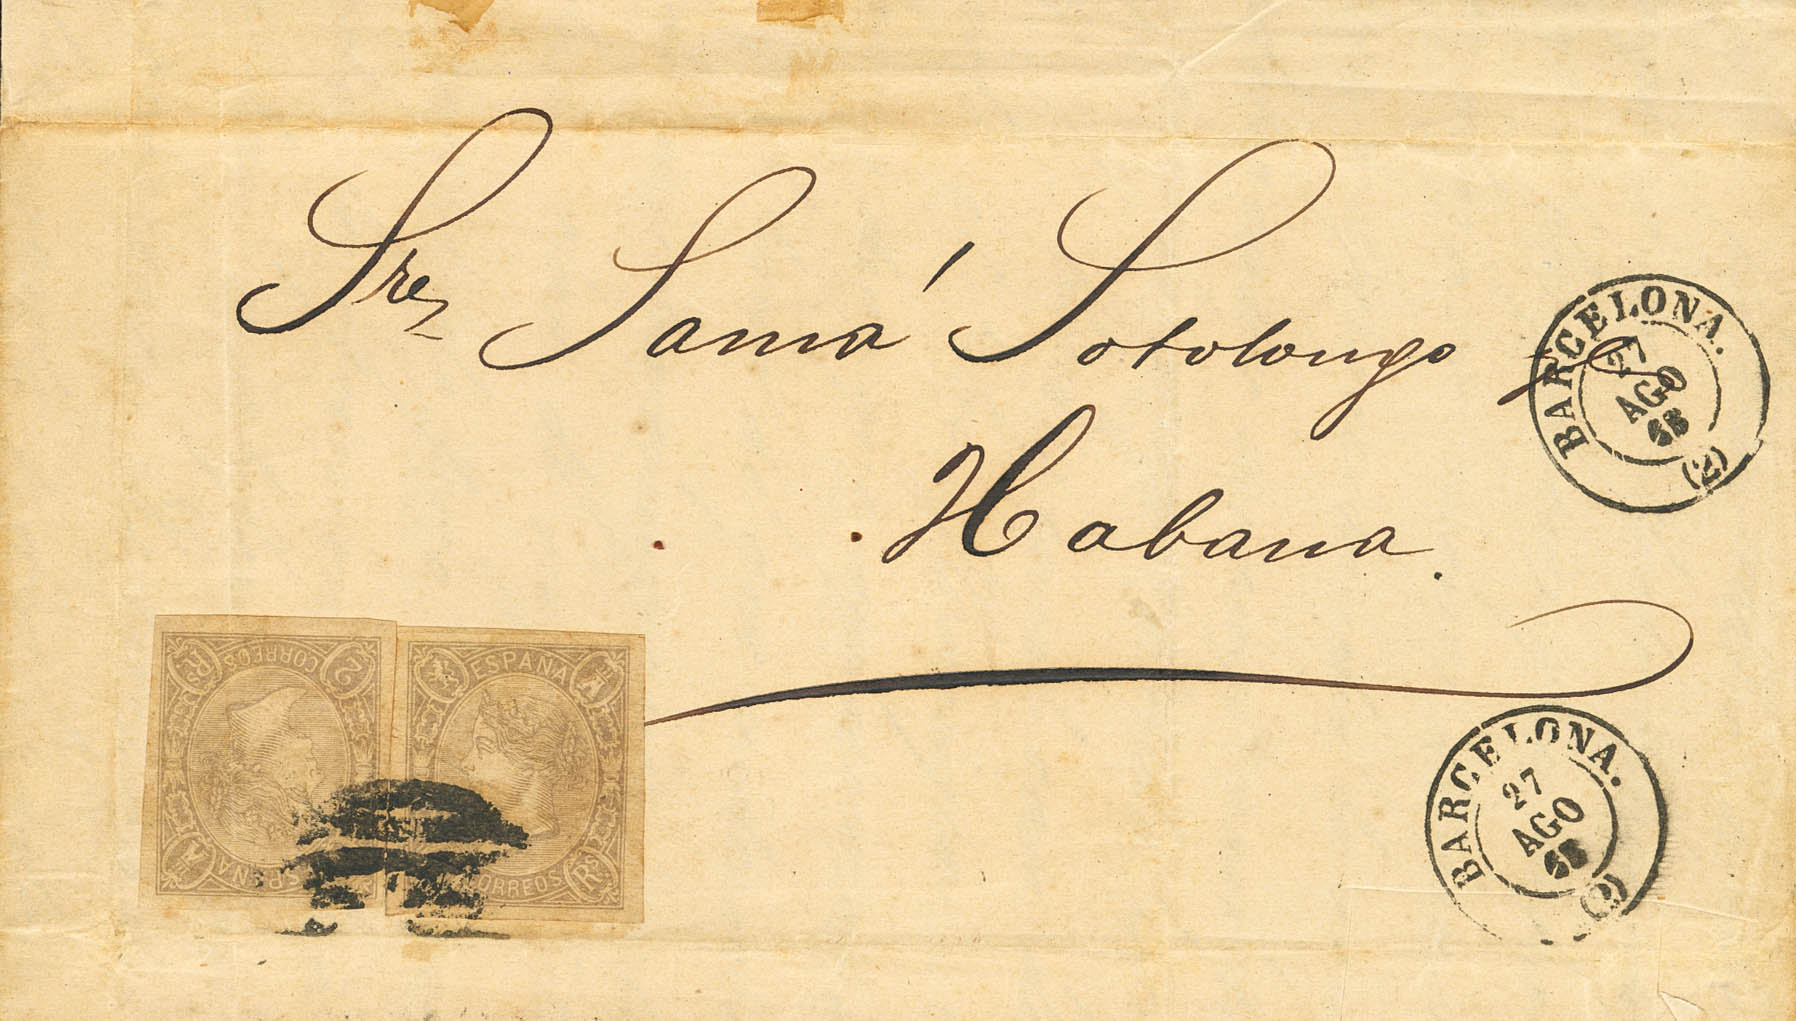 Sres Samá Sotolongo
Habana.
BARCELONA.
27
AGO
65
(2)
BARCELONA.
27
AGO
65
(2)
2 CORREOS Rs
A ESPAÑA
ESPAÑA
CORREOS Rs